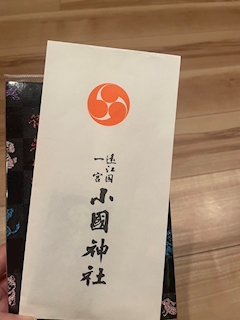 遠江国
一宮
小國神社